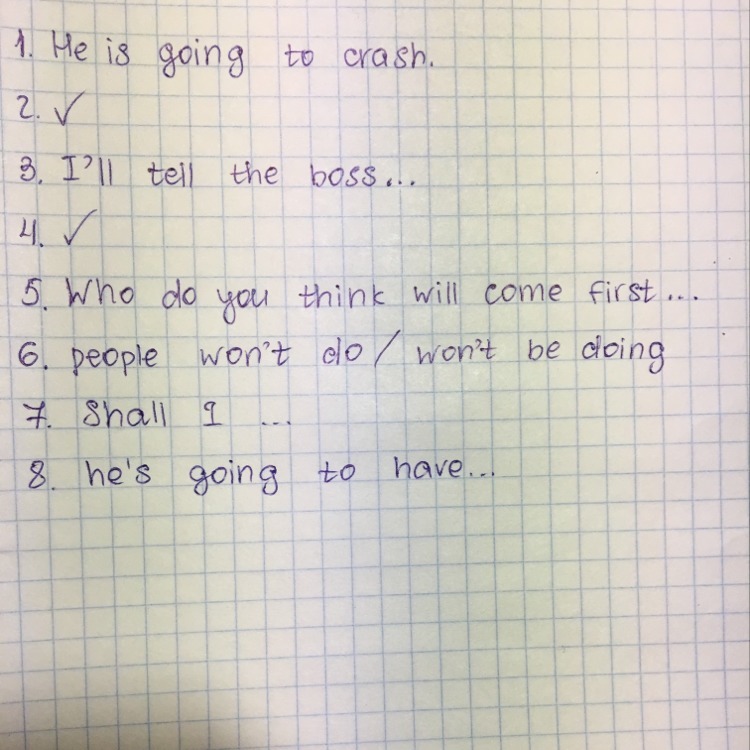 1. He is going to crash.
2. ✓
3. I'll tell the boss...
4. ✓
5. Who do you think will come first...
6. people won't do / won't be doing
7. Shall I ...
8. he's going to have...